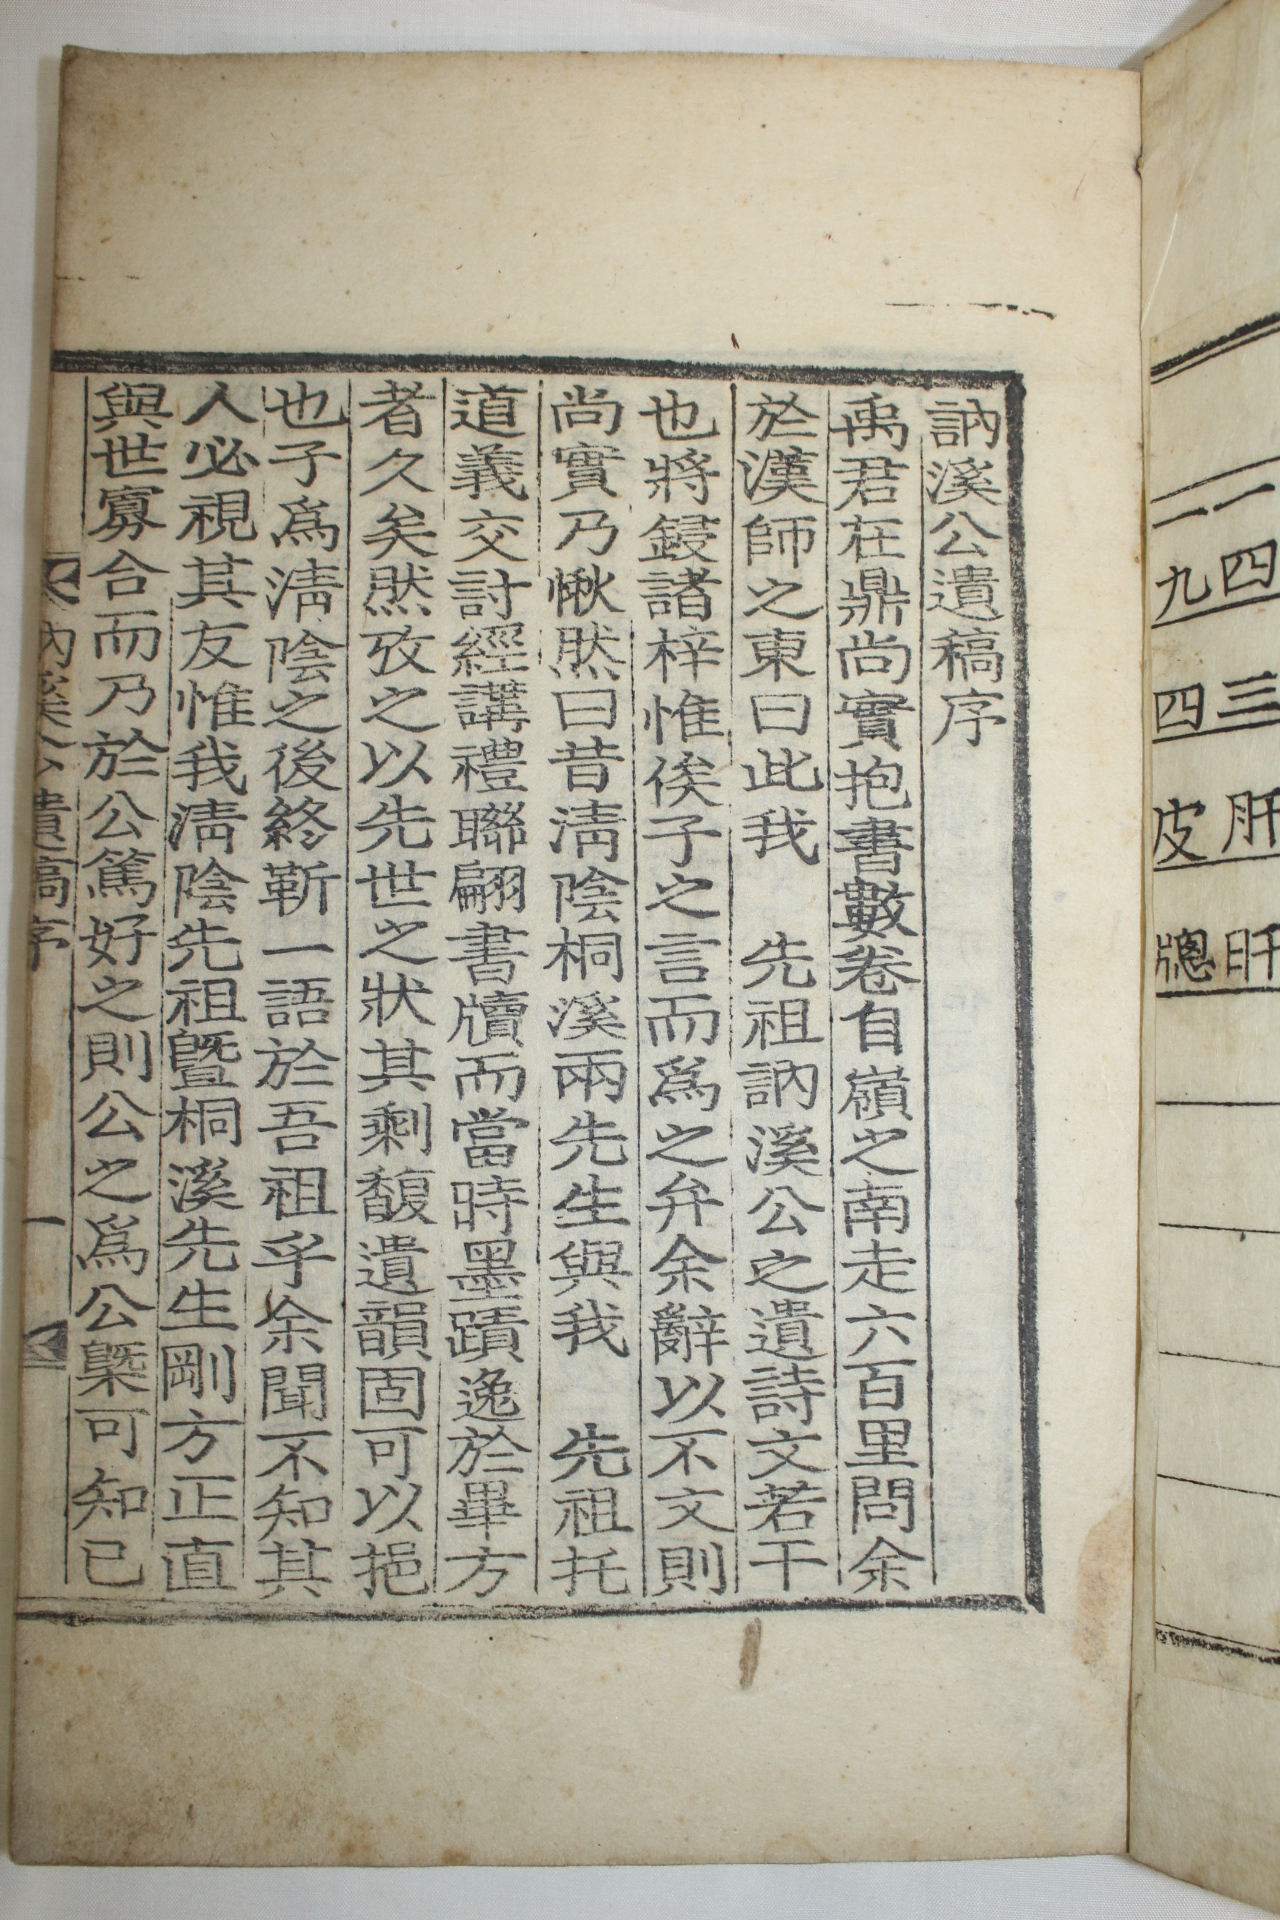 一四三肝肝
一九四皮總
訥溪公遺稿序
禹君在鼎尚實抱書數卷自嶺之南走六百里問余
於漢師之東曰此我　先祖訥溪公之遺詩文若干
也將鋟諸梓惟俟子之言而爲之弁余辭以不文則
尚實乃愀然曰昔淸陰桐溪兩先生與我　先祖托
道義交討經講禮聯翩書牘而當時墨蹟逸於畢方
者久矣然攷之以先世之狀其剩馥遺韻固可以挹
也子爲淸陰之後終靳一語於吾祖乎余聞不知其
人必視其友惟我淸陰先祖曁桐溪先生剛方正直
與世寡合而乃於公篤好之則公之爲公槩可知已
訥溪公遺稿序
一